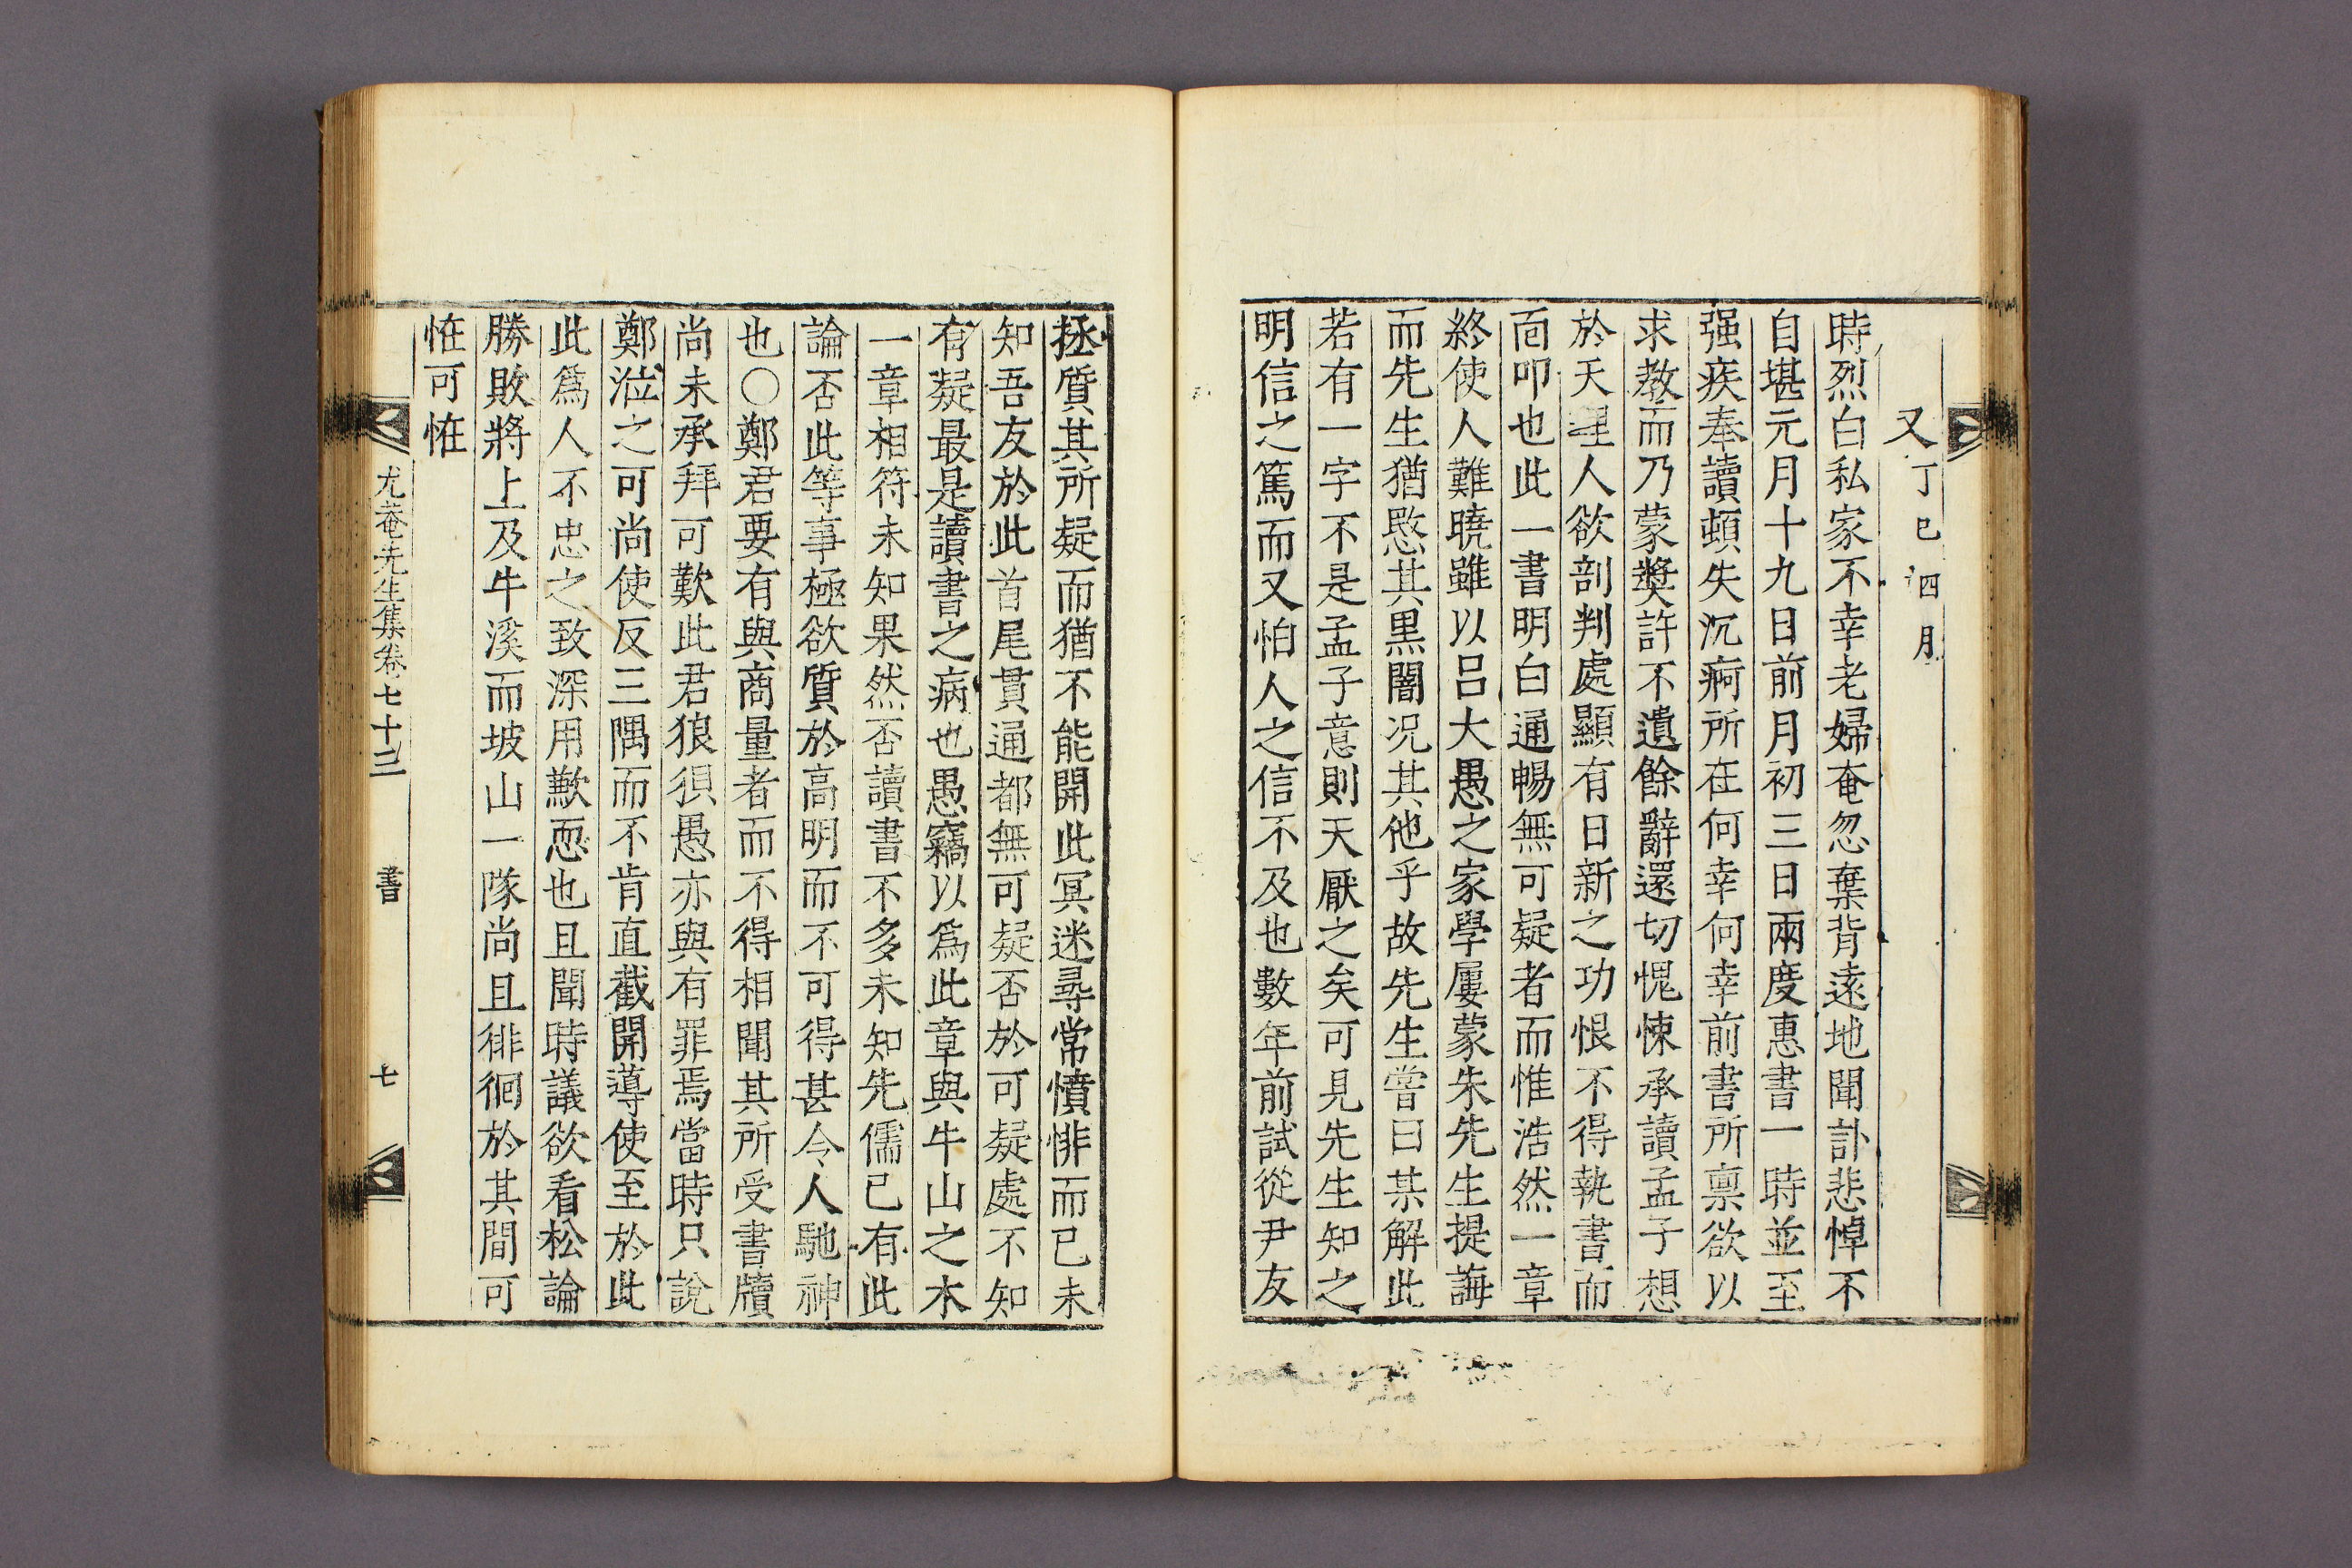 又丁巳四月
時烈白私家不幸老婦奄忽棄背遠地聞訃悲悼不
自堪元月十九日前月初三日兩度惠書一時並至
强疾奉讀頓失沉痾所在何幸何幸前書所禀欲以
求教而乃蒙奬許不遺餘辭還切愧悚承讀孟子想
於天理人欲剖判處顯有日新之功恨不得執書而
面叩也此一書明白通暢無可疑者而惟浩然一章
終使人難曉雖以呂大愚之家學屢蒙朱先生提誨
而先生猶愍其黑闇况其他乎故先生嘗曰某解此
若有一字不是孟子意則天厭之矣可見先生知之
明信之篤而又怕人之信不及也數年前試從尹友
拯質其所疑而猶不能開此冥迷尋常憤悱而已未
知吾友於此首尾貫通都無可疑否於可疑處不知
有疑最是讀書之病也愚竊以爲此章與牛山之木
一章相符未知果然否讀書不多未知先儒已有此
論否此等事極欲質於高明而不可得甚令人馳神
也〇鄭君要有與商量者而不得相聞其所受書牘
尚未承拜可歎此君狼狽愚亦與有罪焉當時只說
鄭涖之可尚使反三隅而不肯直截開導使至於此
此爲人不忠之致深用歉恧也且聞時議欲看松論
勝敗將上及牛溪而坡山一隊尚且徘徊於其間可
恠可恠
尤菴先生集卷七十三 書 七